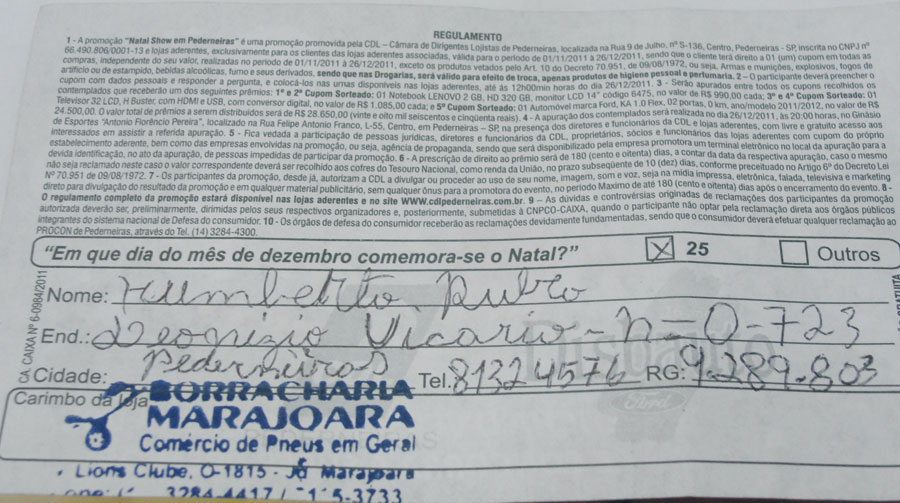 REGULAMENTO
1 - A promoção "Natal Show em Pederneiras" é uma promoção promovida pela CDL – Câmara de Dirigentes Lojistas de Pederneiras, localizada na Rua 9 de Julho, nº S-136, Centro, Pederneiras - SP, inscrita no CNPJ nº
66.490.806/0001-13 e lojas aderentes, exclusivamente para os clientes das lojas aderentes associadas, válida para o período de 01/11/2011 à 26/12/2011, sendo que o cliente terá direito a 01 (um) cupom em todas as
compras, independente do seu valor, realizadas no período de 01/11/2011 à 26/12/2011, exceto os produtos vetados pelo Art. 10 do Decreto 70.951, de 09/08/1972, ou seja, Armas e munições, explosivos, fogos de
artifício ou de estampido, bebidas alcoólicas, fumo e seus derivados, sendo que nas Drogarias, será válido para efeito de troca, apenas produtos de higiene pessoal e perfumaria. 2 – O participante deverá preencher o
cupom com dados pessoais e responder a pergunta, e colocá-los nas urnas disponíveis nas lojas aderentes, até às 12h00min horas do dia 26/12/2011. 3 - Serão apurados entre todos os cupons recolhidos os
contemplados que receberão um dos seguintes prêmios: 1º e 2º Cupom Sorteado: 01 Notebook LENOVO 2 GB, HD 320 GB, monitor LCD 14" código 6475, no valor de R$ 990,00 cada; 3º e 4º Cupom Sorteado: 01
Televisor 32 LCD, H Buster, com HDMI e USB, com conversor digital, no valor de R$ 1.085,00 cada; e 5º Cupom Sorteado: 01 Automóvel marca Ford, KA 1.0 Flex, 02 portas, 0 km, ano/modelo 2011/2012, no valor de R$
24.500,00. O valor total de prêmios a serem distribuídos será de R$ 28.650,00 (vinte e oito mil seiscentos e cinqüenta reais). 4 - A apuração dos contemplados será realizada no dia 26/12/2011, às 20:00 horas, no Ginásio
de Esportes "Antonio Florêncio Pereira", localizado na Rua Felipe Antonio Franco, L-55, Centro, em Pederneiras – SP, na presença dos diretores e funcionários da CDL e lojas aderentes, com livre e gratuito acesso aos
interessados em assistir a referida apuração. 5 - Fica vedada a participação de pessoas jurídicas, diretores e funcionários da CDL, proprietários, sócios e funcionários das lojas aderentes com cupom do próprio
estabelecimento aderente, bem como das empresas envolvidas na promoção, ou seja, agência de propaganda, sendo que será disponibilizado pela empresa promotora um terminal eletrônico no local da apuração para a
devida identificação, no ato da apuração, de pessoas impedidas de participar da promoção. 6 - A prescrição de direito ao prêmio será de 180 (cento e oitenta) dias, a contar da data da respectiva apuração, caso o mesmo
não seja reclamado neste caso o valor correspondente deverá ser recolhido aos cofres do Tesouro Nacional, como renda da União, no prazo subseqüente de 10 (dez) dias, conforme preceituado no Artigo 6º do Decreto Lei
Nº 70.951 de 09/08/1972. 7 - Os participantes da promoção, desde já, autorizam a CDL a divulgar ou proceder ao uso de seu nome, imagem, som e voz, seja na mídia impressa, eletrônica, falada, televisiva e marketing
direto para divulgação do resultado da promoção e em qualquer material publicitário, sem qualquer ônus para a promotora do evento, no período Maximo de até 180 (cento e oitenta) dias após o encerramento do evento. 8 -
O regulamento completo da promoção estará disponível nas lojas aderentes e no site WWW.cdlpederneiras.com.br. 9 – As dúvidas e controvérsias originadas de reclamações dos participantes da promoção
autorizada deverão ser, preliminarmente, dirimidas pelos seus respectivos organizadores e, posteriormente, submetidas à CNPCO-CAIXA, quando o participante não optar pela reclamação direta aos órgãos públicos
integrantes do sistema nacional de Defesa do consumidor. 10 - Os órgãos de defesa do consumidor receberão as reclamações devidamente fundamentadas, sendo que o consumidor deverá efetuar qualquer reclamação ao
PROCON de Pederneiras, através do Tel. (14) 3284-4300.
"Em que dia do mês de dezembro comemora-se o Natal?" X 25 Outros
CA CAIXA Nº 6-0984/2011
Nome: Humberto Rubro
End.: Deonizio Vicario - n=0-723
Cidade: Pederneiras Tel. 81324576 RG: 9.289.803
Carimbo da loja
BORRACHARIA
MARAJOARA
Comércio de Pneus em Geral
Lions Clube, O-1815 - Jd Marajoara
3284-4417 / 5-3733
Ford